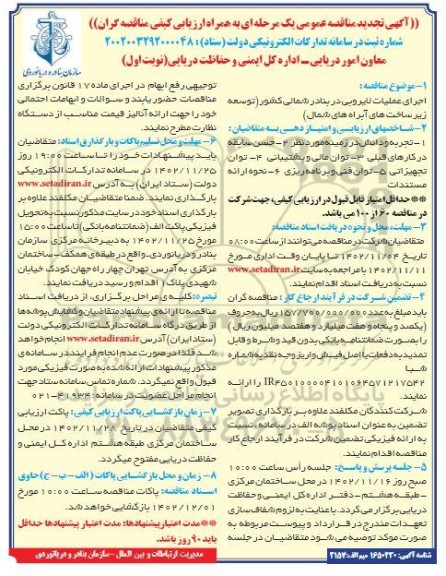 ((آگهی تجدید مناقصه عمومی یک مرحله ای به همراه ارزیابی کیفی مناقصه گران))
شماره ثبت در سامانه تدارکات الکترونیکی دولت (ستاد): ۲۰۰۲۰۰۳۲۹۲۰۰۰۰۴۸
معاون امور دریایی ــ اداره کل ایمنی و حفاظت دریایی (نوبت اول)
سازمان بنادر و دریانوردی
۱- موضوع مناقصه:
اجرای عملیات لایروبی در بنادر شمالی کشور (توسعه
زیر ساخت های آبراه های شمال)
۲- شاخصهای ارزیابی و امتیاز دهی به متقاضیان:
۱- تجربه و دانش در زمینه مورد نظر ۲- حسن سابقه
در کارهای قبلی ۳- توان مالی و پشتیبانی ۴- توان
تجهیزاتی ۵- توان فنی و برنامه ریزی ۶- نحوه ارائه
مستندات
**حداقل امتیاز قابل قبول در ارزیابی کیفی، جهت شرکت
در مناقصه ۶۰ از ۱۰۰ می باشد.
۳- مهلت، محل و نحوه دریافت اسناد مناقصه:
متقاضیان شرکت در مناقصه می توانند از ساعت ۰۸:۰۰
تاریخ ۱۴۰۲/۱۱/۰۴ تا پایان وقت اداری مورخ
۱۴۰۲/۱۱/۱۱ با مراجعه به سایت www.setadiran.ir
نسبت به دریافت اسناد اقدام نمایند.
۴- تضمین شرکت در فرآیند ارجاع کار: مناقصه گران
باید مبلغ به عدد ۱۵۷/۷۰۰/۰۰۰/۰۰۰ ریال به حروف
(یکصد و پنجاه و هفت میلیارد و هفتصد میلیون ریال)
را بصورت ضمانتنامه بانکی بدون قید و شرط و قابل
تمدید به دفعات یا اصل فیش واریز وجه نقد به شماره
شبا
IR۴۵۰۱۰۰۰۰۴۱۰۱۰۶۴۵۷۱۲۱۷۵۴۲ را ارائه
نمایند.
شرکت کنندگان مکلفند علاوه بر بارگذاری تصویر
تضمین به عنوان اسناد پوشه الف در سامانه، نسبت
به ارائه فیزیکی تضمین شرکت در فرآیند ارجاع کار
اقدام نمایند.
۵- جلسه پرسش و پاسخ: جلسه رأس ساعت ۱۰:۰۰
صبح روز ۱۴۰۲/۱۱/۱۶ در محل ساختمان مرکزی
-طبقه هشتم- دفتر اداره کل ایمنی و حفاظت
دریایی برگزار می گردد. با عنایت به لزوم شفاف سازی
تعهدات مندرج در قرارداد و پیوست مربوطه به
صورت موکد توصیه می شود متقاضیان در جلسه
توجیهی رفع ابهام در اجرای ماده ۱۷ قانون برگزاری
مناقصات حضور یابند و سوالات و ابهامات احتمالی
خود را جهت ارائه آنالیز قیمت مناسب از دستگاه
نظارت مطرح نمایند.
۶- مهلت و محل تسلیم پاکات و بارگذاری اسناد: متقاضیان
باید پیشنهادات خود را تا ساعت ۱۹:۰۰ روز
۱۴۰۲/۱۱/۲۵ در سامانه تدارکات الکترونیکی
دولت (ستاد ایران) به آدرس www.setadiran.ir
بارگذاری نمایند. ضمنا متقاضیان مکلفند علاوه بر
بارگذاری اسناد خود در سایت مذکور نسبت به تحویل
فیزیکی پاکت الف (ضمانتنامه بانکی) تا ساعت ۱۵:۰۰
مورخ ۱۴۰۲/۱۱/۲۵ به دبیرخانه مرکزی سازمان
بنادر و دریانوردی واقع در طبقه ی همکف - ساختمان
مرکزی به آدرس تهران چهار راه جهان کودک خیابان
شهیدی پلاک ۱ اقدام و رسید دریافت نمایند.
تبصره: کلیه ی مراحل برگزاری، از دریافت اسناد
مناقصه تا ارائه ی پیشنهاد متقاضیان و گشایش پوشه ها
از طریق درگاه سامانه تدارکات الکترونیکی دولت
(ستاد ایران) آدرس www.setadiran.ir انجام خواهد
شد فلذا در صورت عدم انجام فرآیند در سامانه ی
مذکور پیشنهادات ارائه شده به صورت فیزیکی مورد
قبول واقع نمیگردد. شماره تماس سامانه ستاد جهت
انجام مراحل عضویت در سامانه: ۴۱۹۳۴-۰۲۱
۷- زمان بازگشایی پاکت ارزیابی کیفی: پاکت ارزیابی
کیفی متقاضیان در تاریخ ۱۴۰۲/۱۱/۲۸ در محل
ساختمان مرکزی طبقه هشتم اداره کل ایمنی و
حفاظت دریایی مفتوح میگردد.
۸- زمان و محل بازگشایی پاکات (الف - ب - ج) حاوی
اسناد مناقصه: پاکات مناقصه ساعت ۱۰:۰۰ مورخ
۱۴۰۲/۱۲/۰۱ بازگشایی خواهد شد.
**مدت اعتبار پیشنهادها: مدت اعتبار پیشنهادها حداقل
باید ۹۰ روز باشد.
شناسه آگهی: ۱۶۵۰۴۳۰ میم الف: ۳۱۵۷
مدیریت ارتباطات و بین الملل - سازمان بنادر و دریانوردی